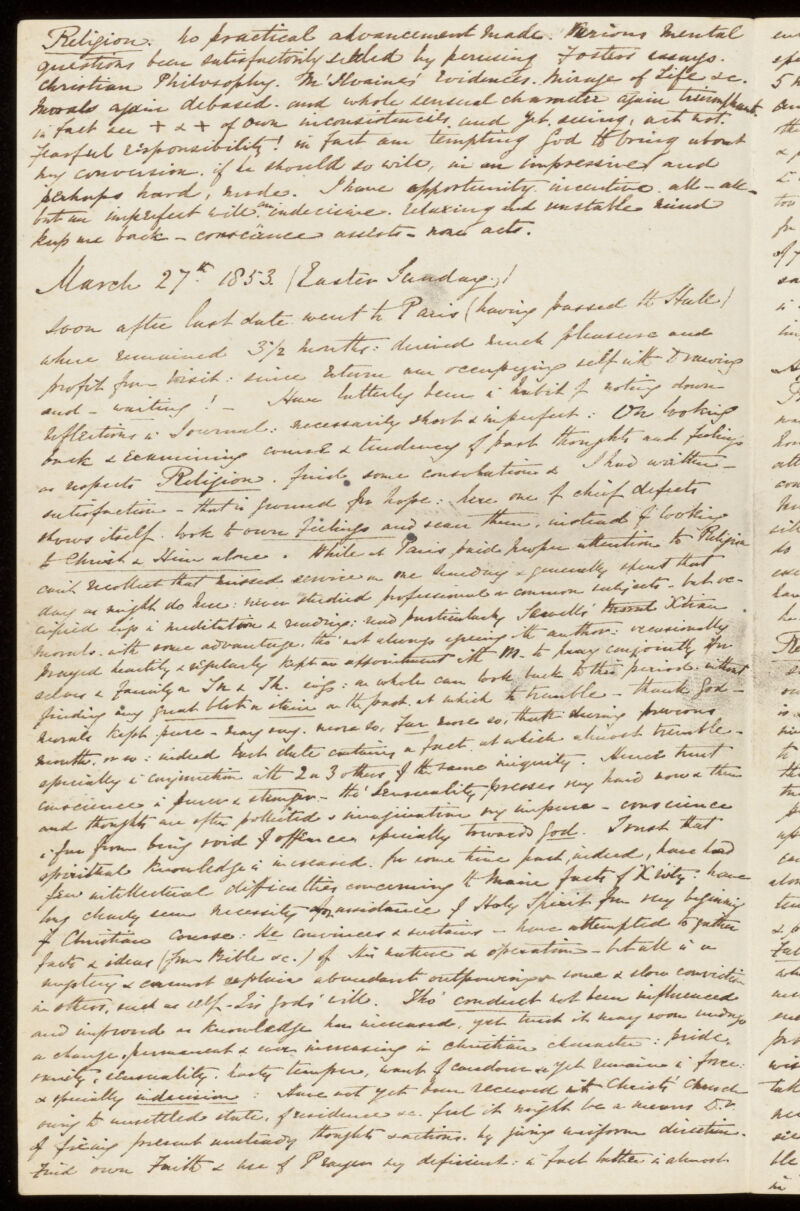 Religion. No practical advancement made. Various mental
questions been satisfactorily settled by perusing Foster's essays.
Christian Philosophy. McIlvaine's Evidences. Mirage of Life &c.
Morals again debased. and whole sensual character again triumphant.
in fact see + & + of own inconsistencies, and yet, seeing, act not.
Fearful responsibility! in fact am tempting God to bring about
my conversion, if he should so will, in an impressive and
perhaps hard, mode. I have opportunity. incentive. all - all -
but an imperfect will, an indecisive. relaxing and unstable mind
keep me back - conscience assists - now acts.
March 27th 1853. (Easter Sunday.)!
Soon after last date went to Paris (having passed the Hall)
where remained 3 1/2 months: derived much pleasure and
profit from visit: since return am occupying self with Drawing
and - waiting! - Have latterly been in habit of noting down
reflections in Journal: necessarily short & imperfect: On looking
back & examining course & tendency of past thoughts and feelings
as respects Religion. find some consolation & I had written -
satisfaction - that is ground for hope: here one of chief defects
shows itself. look to own feelings and scan them, instead of looking
to Christ & Him alone. While at Paris, paid proper attention to Religion
can't recollect that missed service on one Sunday & generally spent that
day as might do here: never studied professional or common subjects - but oc-
cupied evgs in meditation & reading: read particularly Sewell's Xtian
morals. with some advantage, tho' not always agreeing with author: occasionally
prayed heartily & regularly kept an appointment with M- to pray conjointly for
selves & family on Tu & Th. evgs: on whole can look back to this period without
finding any great blot or stain on the past, at which to tremble - thank God -
morals kept pure - may say. more so, far more so, than during previous
month. or so: indeed last date contains a fact, at which almost tremble -
specially in conjunction with 2 or 3 others of the same iniquity. Hence trust
conscience is purer & stronger - tho' sensuality presses very hard now & then
and thoughts are often polluted & imagination very impure - conscience
is far from being void of offence, specially towards God. Trust that
spiritual knowledge is increased. for some time past, indeed, have had
few intellectual difficulties concerning the main facts of Xtity: have
long clearly seen necessity of Holy Spirit from very beginning
of Christian Course: He convinces & sustains - have attempted to gather
facts & ideas (from Bible &c.) of His nature & operation - but all is a
mystery & cannot explain abundant outpouring on some & slow conviction
in others, such as self - Tis God's will. Tho' conduct not been influenced
and improved as knowledge has increased, yet trust it may soon undergo
a change, permanent & ever increasing in christian character: pride,
vanity, sensuality. hasty temper, want of candour &c yet remain in force:
& specially indecision: Have not yet been received into Christ's Church
owing to unsettled state, of residence &c. feel it might be a means D.V.
of fixing present unsteady thoughts & actions. by giving uniform direction.
Find own Faith & use of Prayer very deficient: in fact latter is almost